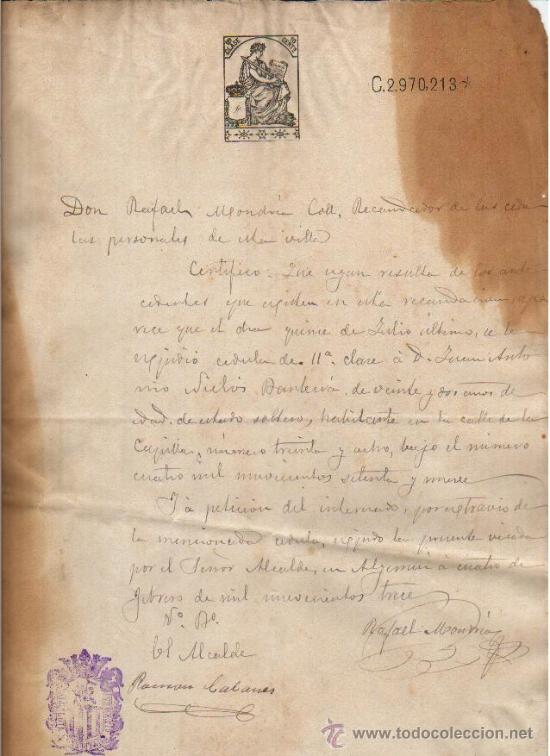 10ª CLASE 10 CENTS
C.2.970,213
Don Rafael Mondría Coll, Recaudador de las cedu
las personales de esta villa
Certifico: Que segun resulta de los ante
cedentes que existen en esta recaudacion, apa
rece que el dia quince de Julio último, se le
expidió cedula de 11ª clase á D. Juan Anto
nio de veinte y dos años de
edad, de estado soltero, habitante en la calle de la
Capilla, número treinta y ocho, bajo el número
cuatro mil nuevecientos setenta y nueve
Y á peticion del interesado, por extravio de
la mencionada cedula, expido la presente visada
por el Señor Alcalde, en Algemesí á cuatro de
Febrero de mil nuevecientos trece
Vº Bº
Rafael Mondría
El Alcalde
Ramon Cabanes
todocoleccion
www.todocoleccion.net